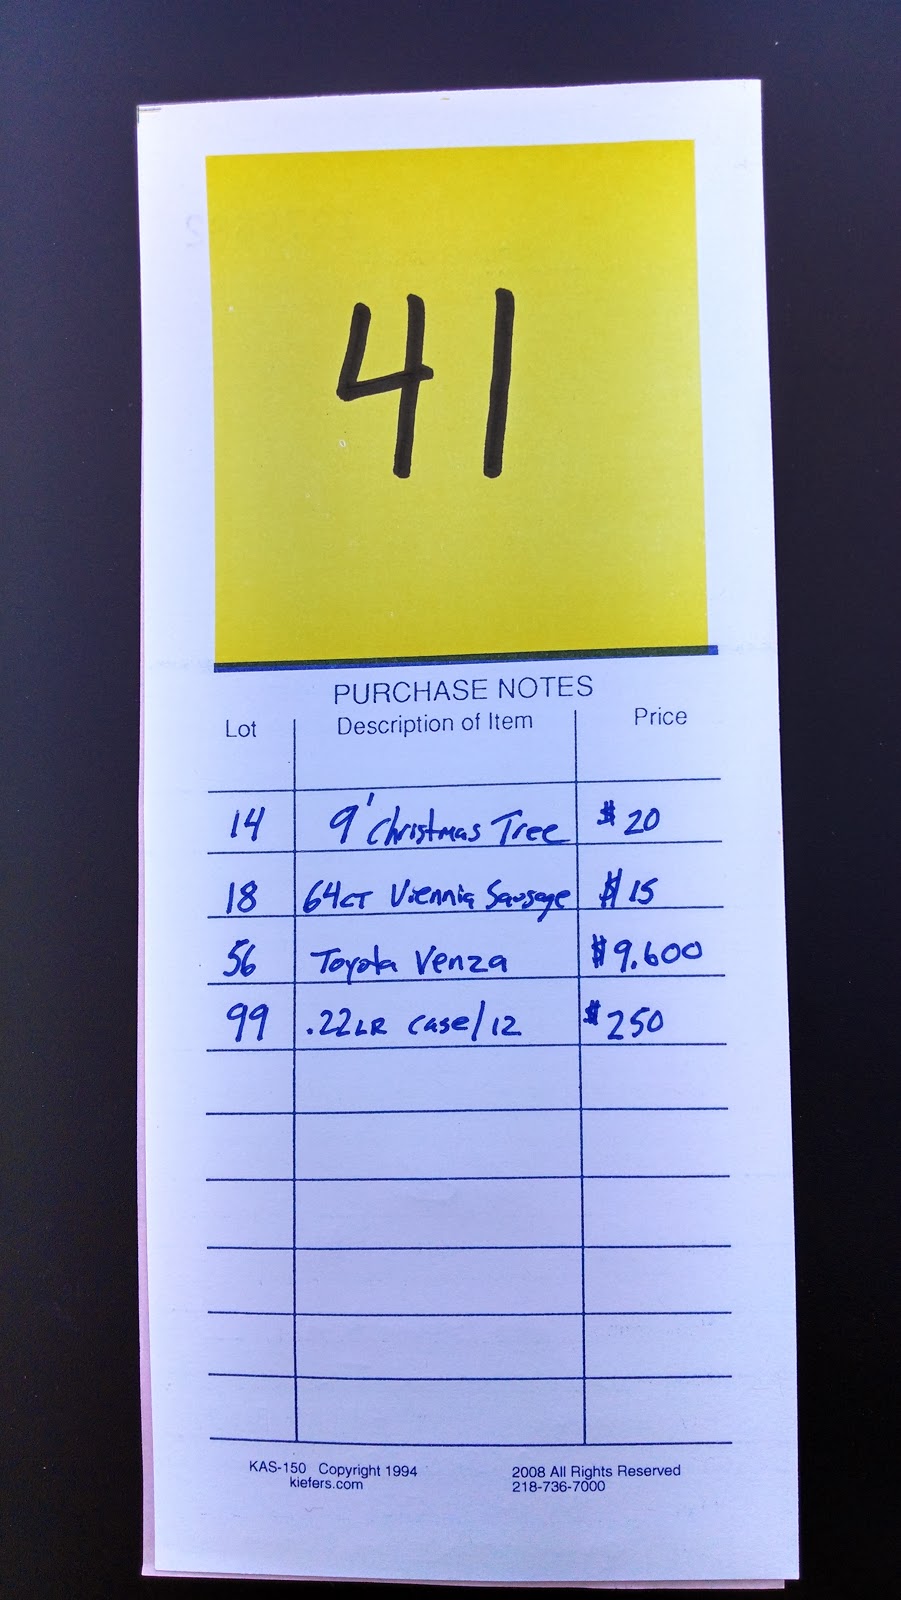 41
PURCHASE NOTES
Lot Description of Item Price
14 9' Christmas Tree $20
18 64CT Viennia Sausage $15
56 Toyota Venza $9.600
99 .22LR case/12 $250
KAS-150 Copyright 1994 2008 All Rights Reserved
kiefers.com 218-736-7000